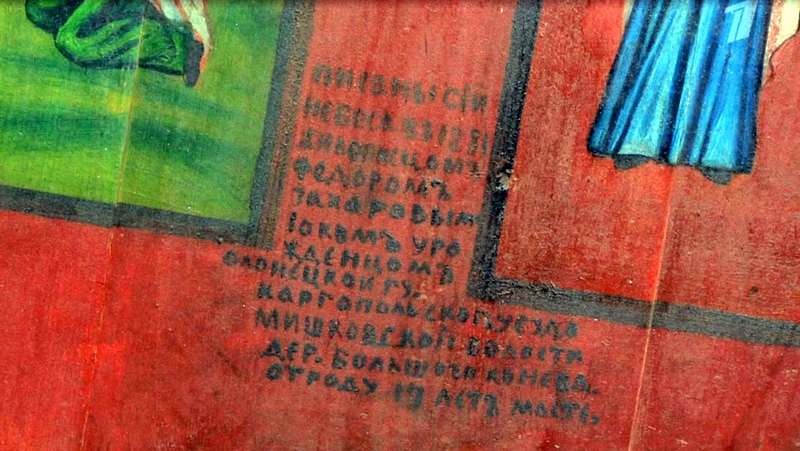 ПИСАНЫ СІИ
НЕБЕСА ВЪ 1881
ЖИВОПИСЦОМЪ
ФЕДОРОМЪ
ЗАХАРОВЫМ
ІОКОМЪ УРО
ЖДЕНЦОМЪ
ОЛОНЕЦКОЙ ГУ.
КАРГОПОЛЬСКОГ. УЕЗДА
МИШКОВСКОЙ ВОЛОСТИ
ДЕР. БОЛЬШОГО КОНЕВА.
ОТРОДУ 19 ЛЕТЪ